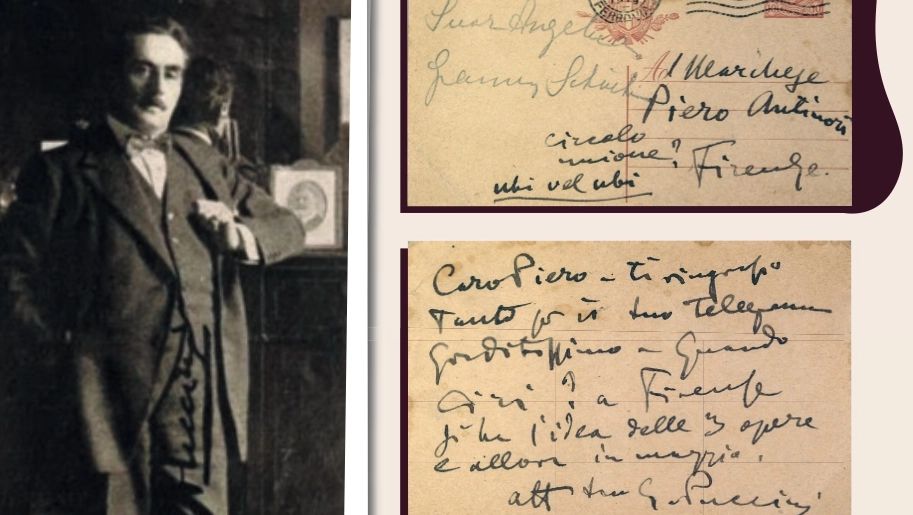 FERROVIA
Suor Angelica
Gianni Schicchi
Al Marchese
Piero Antinori
circolo
unione?
ubi vel ubi
Firenze.
Caro Piero - ti ringrazio
tanto pr il tuo telegramma
graditissimo - Quando
? a Firenze
l'idea delle 3 opere
e allora in maggio.
aff tuo G. Puccini